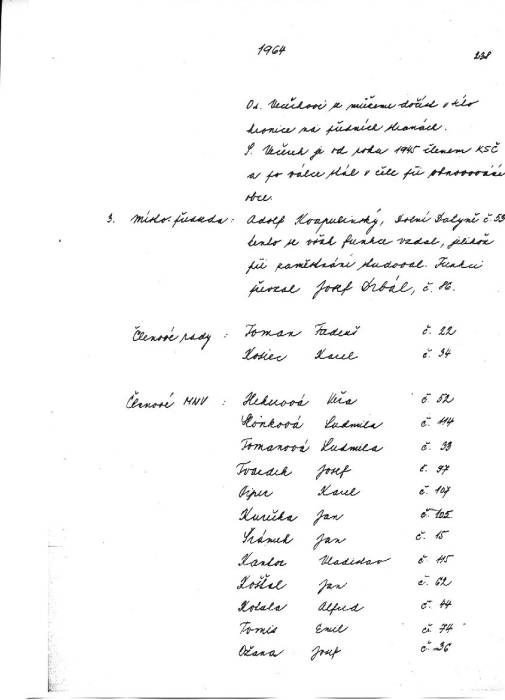 1964
238
Os. Večeřkovi se můžeme dočíst v této
kronice na předních stranách.
S. Večerek je od roku 1945 členem KSČ
a po válce stál v čele při obnovování
obce.
3. Místo-předseda: Adolf Kvapulinský, Dolní Datyně č. 53
tento se však funkce vzdal, jelikož
při zaměstnání studoval. Funkci
převzal Josef Drbál, č. 86.
Členové rady : Toman Tadeuš č. 22
Kosiec Karel č. 34
Členové MNV : Věra č. 52
Ludmila č. 114
Tomanová Ludmila č. 93
Tvardek Josef č. 97
Piper Karel č. 107
Kuručka Jan č. 105
Šrámek Jan č. 15
Kantor Vladislav č. 115
Koščal Jan č. 62
Kotala Alfred č. 44
Tomis Emil č. 74
Ožana Josef č. 36